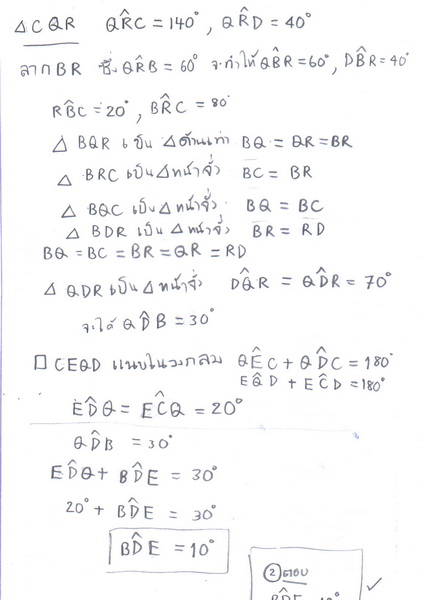 △CQR QR̂C = 140°, QR̂D = 40°
ลาก BR ซึ่ง QR̂B = 60° จะทำให้ QB̂R = 60°, DB̂R = 40°
RB̂C = 20°, BR̂C = 80°
△ BQR เป็น △ด้านเท่า BQ = QR = BR
△ BRC เป็น △หน้าจั่ว BC = BR
△ BQC เป็น △ หน้าจั่ว BQ = BC
△ BDR เป็น △ หน้าจั่ว BR = RD
BQ = BC = BR = QR = RD
△ QDR เป็น △ หน้าจั่ว DQ̂R = QD̂R = 70°
จะได้ QD̂B = 30°
□ CEQD แนบในวงกลม QÊC + QD̂C = 180°
EQ̂D + EĈD = 180°
ED̂Q = EĈQ = 20°
QD̂B = 30°
ED̂Q + BD̂E = 30°
20° + BD̂E = 30°
BD̂E = 10°
② ตอบ
BD̂E 10° ✓